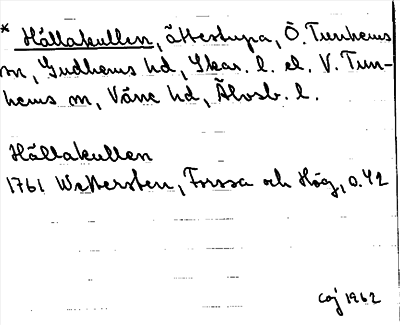 * Hållakullen, ättestupa, Ö. Tunhems
sn, Gudhems hd, Skar. l. el. V. Tun-
hems sn, Väne hd, Älvsb. l.
Hållakullen
1761 Wettersten, Forssa och Hög, s. 42
CGJ 1962